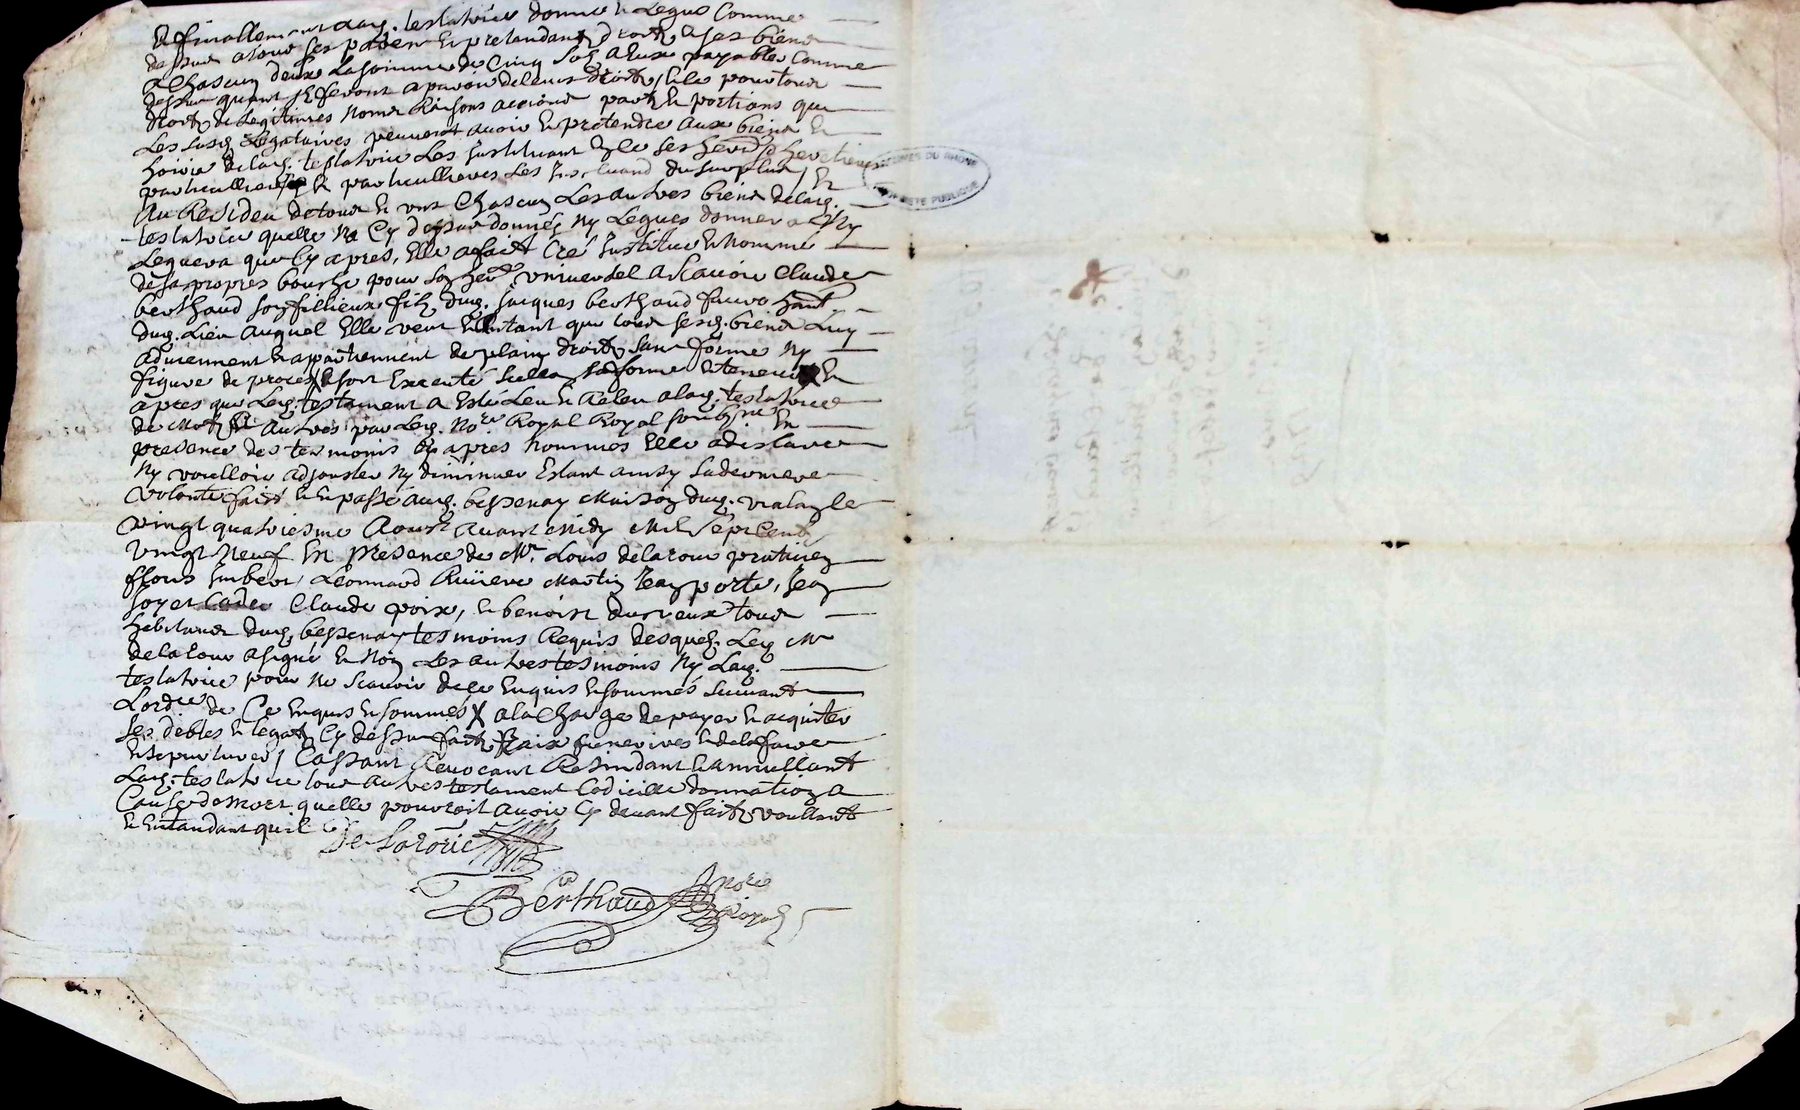 Et finallement lad. testatrice donne et legue comme
dessus a tous ses parens et pretendants droits a ses biens
a chascun deux la somme de cinq sols a eux payables comme
dessus quant ils feront aparoir de leurs droits, et ce pour tous
droits de legitimes nomes raisons actions parts et portions que
Les susd. Legataires peuvent avoir et pretendre aux biens et
hoirie de lad. testatrice Les instituant
particulliers et particullieres Les du surplus, Et
Au Residu de tous et uns chascun Les autres biens de lad.
testatrice quelle na cy dessus donnés ny Legues donnera ny
Leguera que cy apres, Elle a fait creé institue et nomme
de sa propre bouche pour son herr. universel a scavoir claude
berthaud son fillieux fils dud. Jacques berthaud
dud. Lieu auquel Elle veut et entant que tous sesd. biens Luy
adviennent et apartiennent de plain droits sans forme ny
figure de proces et soit Executé sellon sa forme et teneur Et
apres que Led. testament a Esté Leu et Releu a lad. testatrice
de mots a autres par Led. No.re Royal Royal soub.né En
presence des tesmoins cy apres nommés Elle a desclare
Ny voulloir adjouster Ny diminuer Estant ainsy sa derniere
volonté fait et passé aud. bessenay Maison dud. vialay le
vingt quatriesme Aoust avant Midy Mil sept cents
vingt Neuf En presence de Mr. Louis delaroue praticien
fflouis Imbert, Leonnard Riviere Martin Jean porte, Jean
soyer Claude poix, et benoist durieux tous
habitants dud. bessenay tesmoins Requis desquels Led. Mr
delaroue a signé et Non Les autres tesmoins Ny Lad.
testatrice pour Ne scavoir de ce Enquis et sommés suivant
Lordre de Ce Enquis et sommés X a la charge de payer et acquiter
ses debtes et legats cy dessus faits fraix funerires et de la faire
Ensepulturer, Cassant Revocant Resindant et annullant
Lad. testatrice tous autres testament Codicille donnation a
Cause de mort quelle pourroit avoir cy devant faits voullant
et entandant quil
De Laroüe
Berthaud nore
Royal
ARCHIVES DU RHÔNE
PROPRIÉTÉ PUBLIQUE